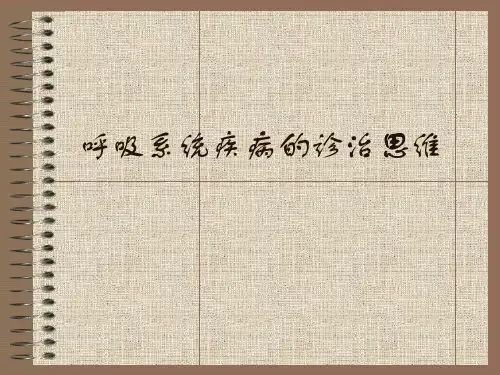 呼吸系统疾病的诊治思维